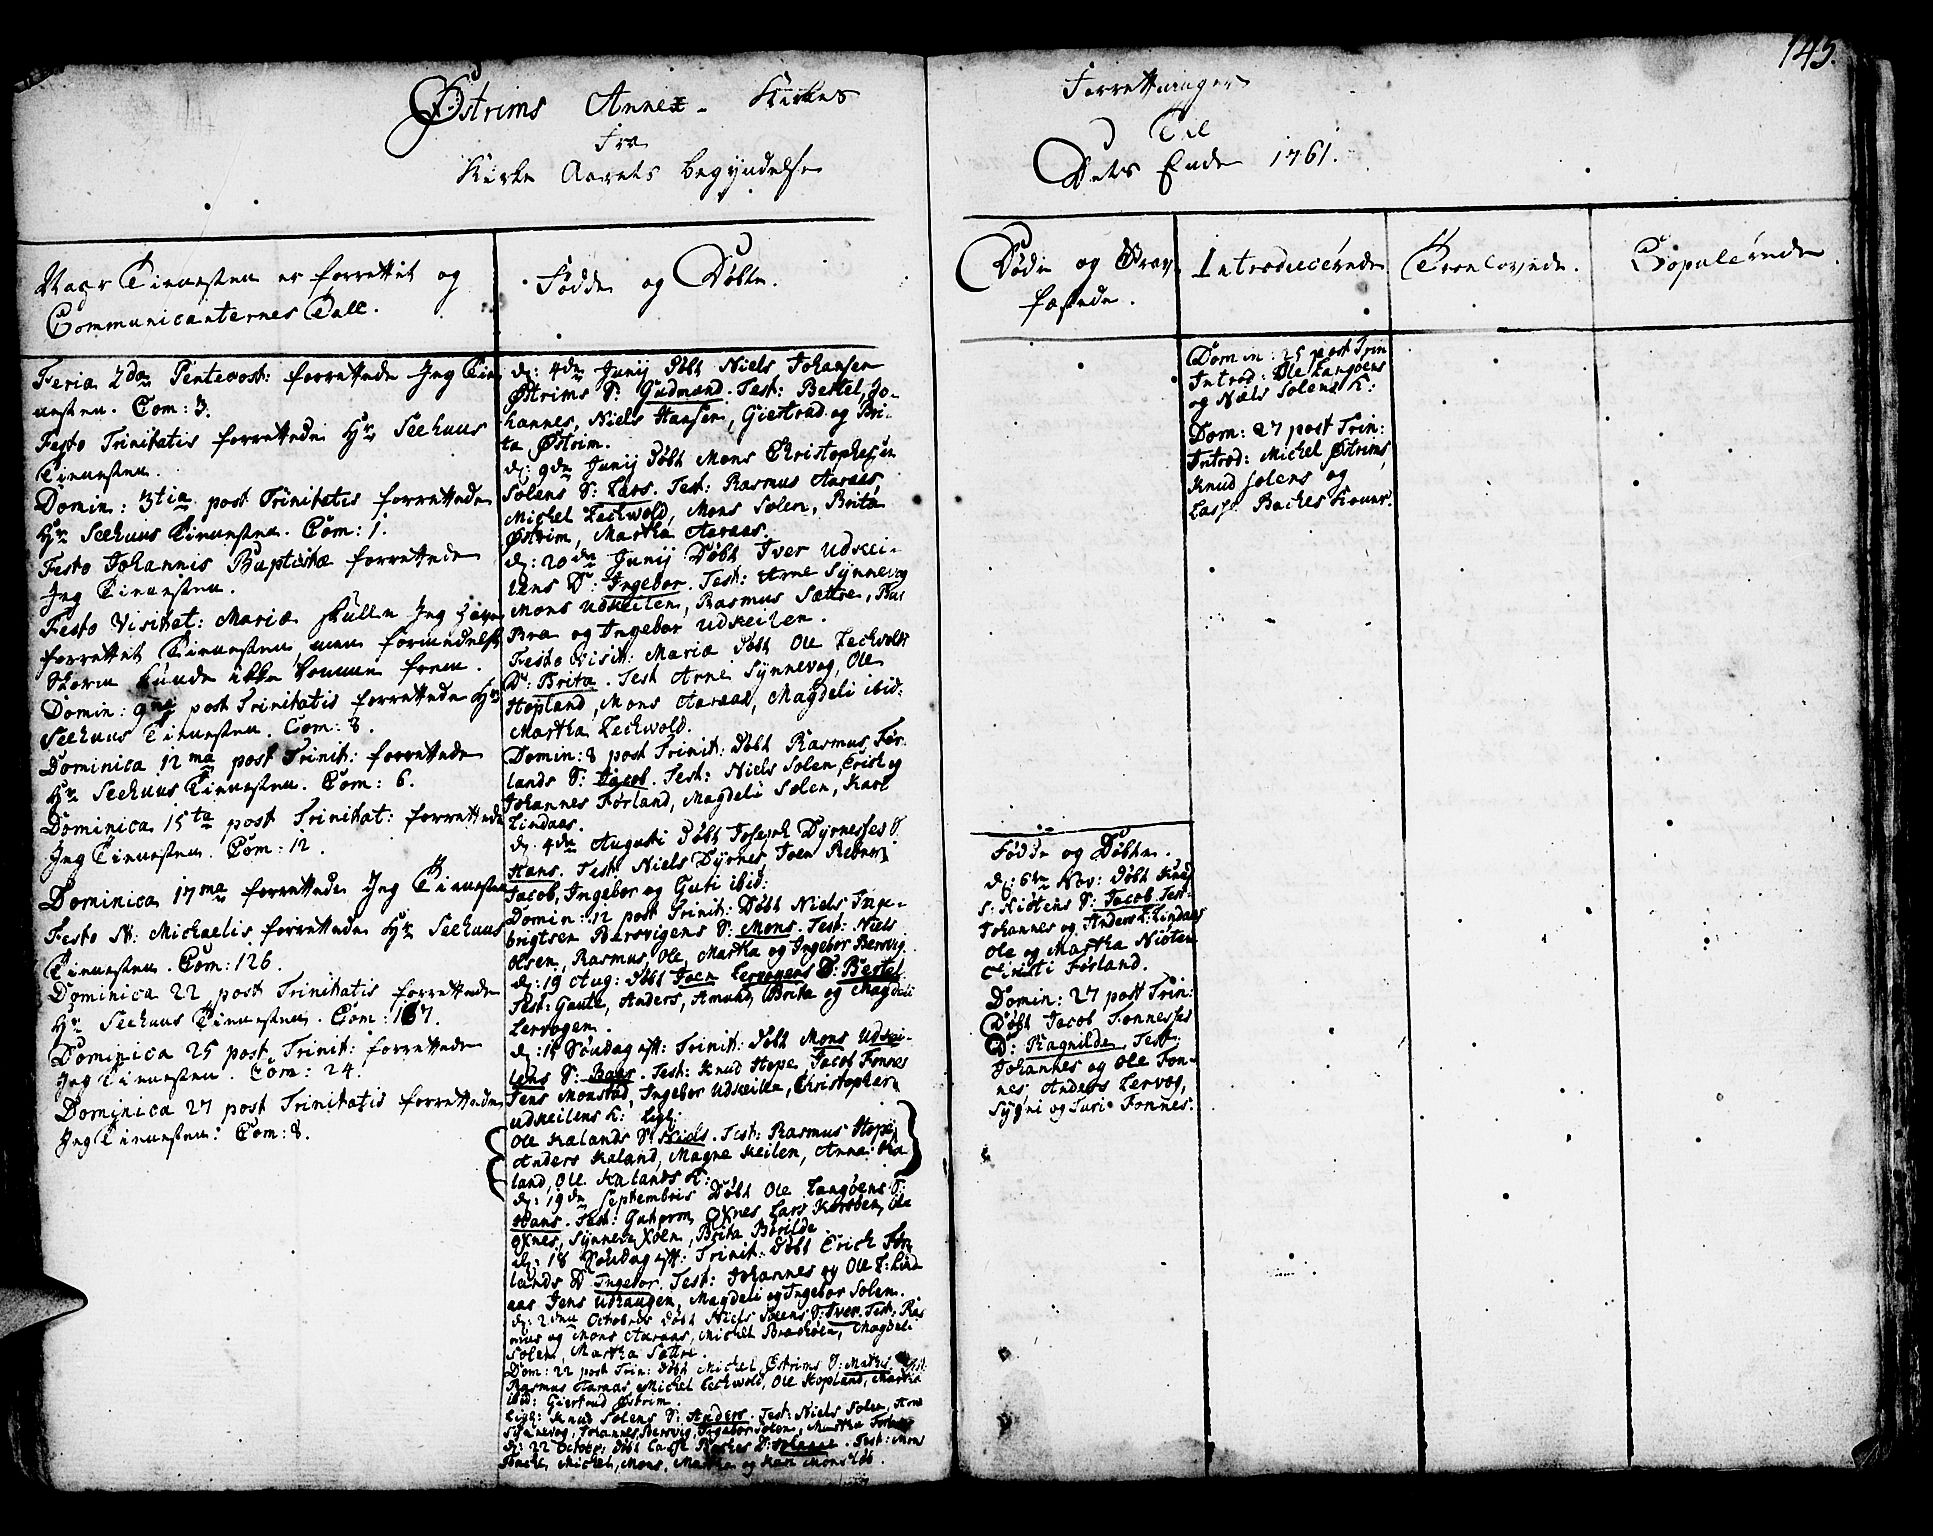 145.
Østrims Annex-Kirkes
Forretninger
Fra
Til
Kirke Aarets begyndelse
Dets Ende 1761.
Naar Tienesten er forrettet og
Communicanternes Tall.
Fødde og Døbte.
Døde og Grav
fæstede.
Introducerede
Troelovede.
Copulerede.
Feria 2da Pentecost: forrettede Jeg Tie
nesten. Com: 3.
Festo Trinitatis forrettede Hr Seehuus
Tienesten.
Domin: 3tia post Trinitatis forrettede
Hr Seehuus Tienesten. Com: 1.
Festo Johannis Baptistæ forrettede
Jeg Tienesten.
Festo Visitat: Mariæ skulle Jeg have
forrettet Tienesten, men formedelst
Storm kunde ikke komme frem.
Domin: 9na post Trinitatis forrettede Hr
Seehuus Tienesten. Com: 8.
Dominica 12ma post Trinit: forrettede
Hr Seehuus Tienesten. Com: 6.
Dominica 15ta post Trinitat: forrettede
Jeg Tienesten. Com: 12.
Dominica 17ma forrettede Jeg Tienesten
Festo St: Michaelis forrettede Hr Seehuus
Tienesten. Com: 126.
Dominica 22 post Trinitatis forrettede
Hr Seehuus Tienesten. Com: 167.
Dominica 25 post Trinit: forrettede
Jeg Tienesten. Com: 24.
Dominica 27 post Trinitatis forrettede
Jeg Tienesten: Com: 8.
d: 4de Junij Døbt Niels Johansen
Østrims S: Gudmund. Test: Bertel, Jo-
hannes, Niels Hansen, Giertrud og Bri-
ta Østrim.
d: 9de Junij Døbt Mons Christophersen
Solens S: Lars. Test: Rasmus Aaraas,
Michel Leckwold, Mons Solen, Brita
Østrim, Martha Aaraas.
d: 20de Junij Døbt Iver Udkei-
lens D: Ingebor. Test: Arne Synnevog
Mons Udkeilen, Rasmus Sættre,
Bra og Ingebor Udkeilen.
Festo Visit: Mariæ Døbt Ole Leckvolds
D: Brita. Test Arne Synnevog, Ole
Hopland, Mons Aaraas, Magdeli ibid:
Martha Leckwold.
Domin: 8 post Trinit: Døbt Rasmus Før-
lands S: Jacob. Test: Niels Solen, Erik og
Johannes Førland, Magdeli Solen, Kari
Lindaas.
d: 4de Augusti Døbt Joseph Dyrnesses S.
Hans. Test: Niels Dyrnes, Joen
Jacob, Ingebor og Guri ibid:
Domin: 12 post Trinit: Døbt Niels Inge-
brigtsen Bersvigens S: Mons. Test: Niels
Olsen, Rasmus, Ole, Martha og Ingebor Bersvig
d: 19 Aug: Døbt Joen Lervogens S: Bertel
Test: Gaute, Anders, Amund, Brita og Magdeli
Lervogen.
d: 15 Søndag eft: Trinit: Døbt Mons Udkei-
lens S: Baar. Test: Knud Hope, Jacob Fonnes
Jens Monstad, Ingebor Udkeilen, Christopher
Udkeilens K: ligl:
Ole Kalands S: Niels. Test: Rasmus Hope,
Anders Kaland, Magne Keilen, Anna Ka
land, Ole Kalands K:
d: 19de Septembris Døbt Ole Langøens S:
Hans. Test: Gutorm Oxnes, Lars Ole
Oxnes, Brita
d: 18 Søndag eft: Trinit: Døbt Erich Før
lands D Ingebor. Test: Johannes og Ole F: Lind
aas Jens Udhaugen, Magdeli og Ingebor Solen.
d: 2den Octobris Døbt Niels Solens S: Iver. Test: Ras
mus og Mons Aaraas, Michel Magdeli
Solen, Martha Sættre.
Dom: 22 post Trin: Døbt Michel Østrims S: Test:
Rasmus Aaraas, Michel Leckwold, Ole Hopland, Martha
ibid: Giertrud Østrim.
Ligl: Knud Solens S: Anders. Test: Niels Solen, Arne
Synnevog, Johannes Bersvig, Ingebor Solen, Martha
d: 22 Octobr: Døbt Lasse Baches Test: Mons
Michel, Mons, Martha og Kari
Domin: 25 post Trin
Introd: Ole Langøens
og Niels Solens K:
Dom: 27 post Trin:
Introd: Michel Østrims,
Knud Solens og
Lasse Baches Koner.
Fødde og Døbte.
d: 6te Nov: Døbt Knud
S: Kiøtens S: Jacob Test:
Johannes og Anders L: Lindaas
Ole og Martha
Førland.
Domin: 27 post Trin:
Døbt Jacob Fonnesses
D: Ragnilde Test:
Johannes og Ole Fon-
nes Anders Lervog,
Sygni og Turi Fonnes.